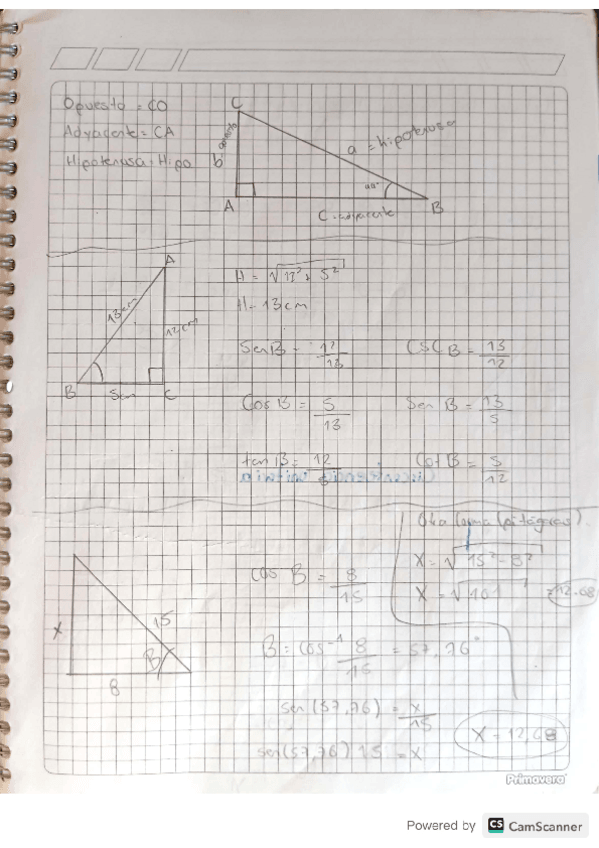 Opuesto = CO
Adyacente = CA
Hipotenusa = Hipo
C
a = hipotenusa
b
A
C. adyacente
B
A
13 cm
12 cm
B
5cm
C
H = √
H = 13 cm
Sen B = 12/13
CSC B = 13/12
Cos B = 5/13
Sen B = 13/5
tan B = 12/
Cot B = 5/12
Otra forma (pitágoras).
X = √15² - 8²
X = √161 = 12.68
x
15
B
8
cos B = 8/15
B = cos⁻¹ 8/15 = 57,76°
sen (57,76) = x/15
sen (57,76) 15 = x
X = 12,68
Primavera
Powered by CS CamScanner